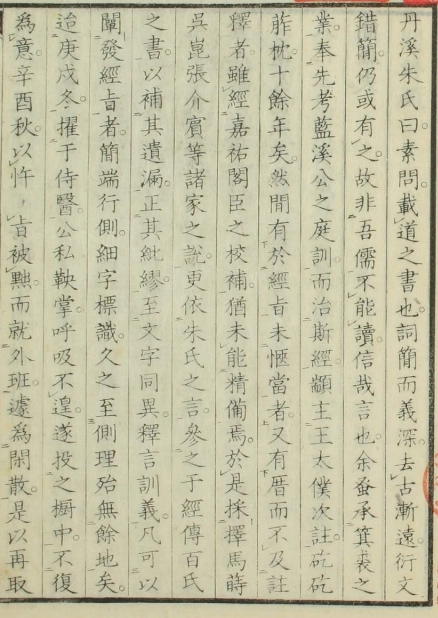 丹溪朱氏曰素問載道之書也詞簡而義深去古漸遠衍文
錯簡仍或有之故非吾儒不能讀信哉言也余蚤承箕裘之
業奉先考藍溪公之庭訓而治斯經顓主王太僕次註矻矻
胙枕十餘年矣然間有於經旨未愜當者又有厝而不及註
釋者雖經嘉祐閣臣之校補猶未能精備焉於是採擇馬蒔
吳崑張介賓等諸家之說更依朱氏之言參之于經傳百氏
之書以補其遺漏正其紕繆至文字同異釋言訓義凡可以
闡發經旨者簡端行側細字標識久之至側理殆無餘地矣
迨庚戌冬擢于侍醫公私鞅掌呼吸不遑遂投之橱中不復
為意辛酉秋以忤〻旨被黜而就外班遽為閑散是以再取